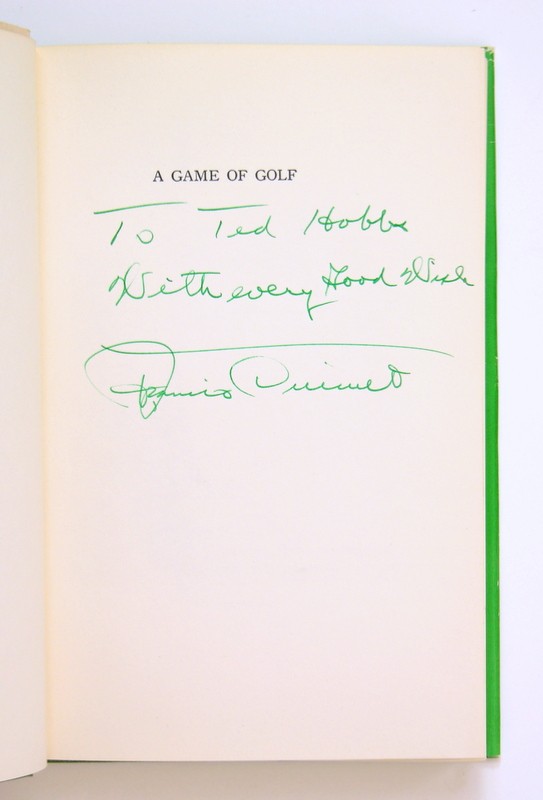 A GAME OF GOLF
To Ted Hobbs
With every Good Wish
Francis Ouimet